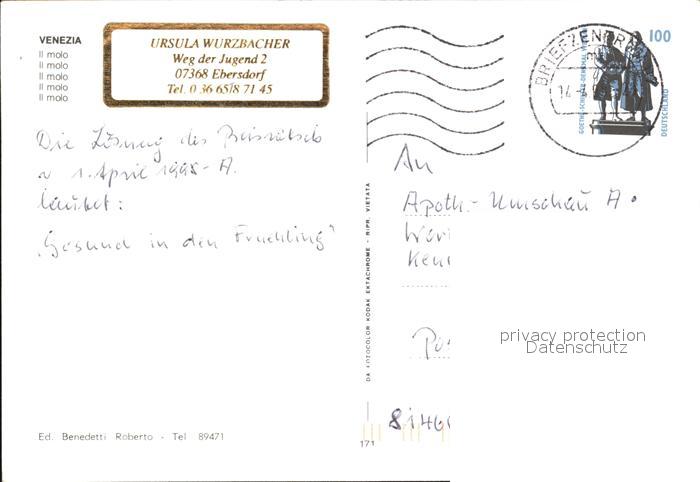 VENEZIA
Il molo
Il molo
Il molo
Il molo
Il molo
URSULA WURZBACHER
Weg der Jugend 2
07368 Ebersdorf
Tel. 0 36 65/8 71 45
Die Lösung des Preisrätsels
v 1. April 1998-A.
lautet:
"Gesund in den Fruehling"
Ed. Benedetti Roberto - Tel 89471
DA FOTOCOLOR KODAK EKTACHROME - RIPR. VIETATA
171
BRIEFZENTR
14
100
DEUTSCHLAND
An
Apoth.-Umschau A.
Wört
Kenn
Pos
8146
privacy protection
Datenschutz